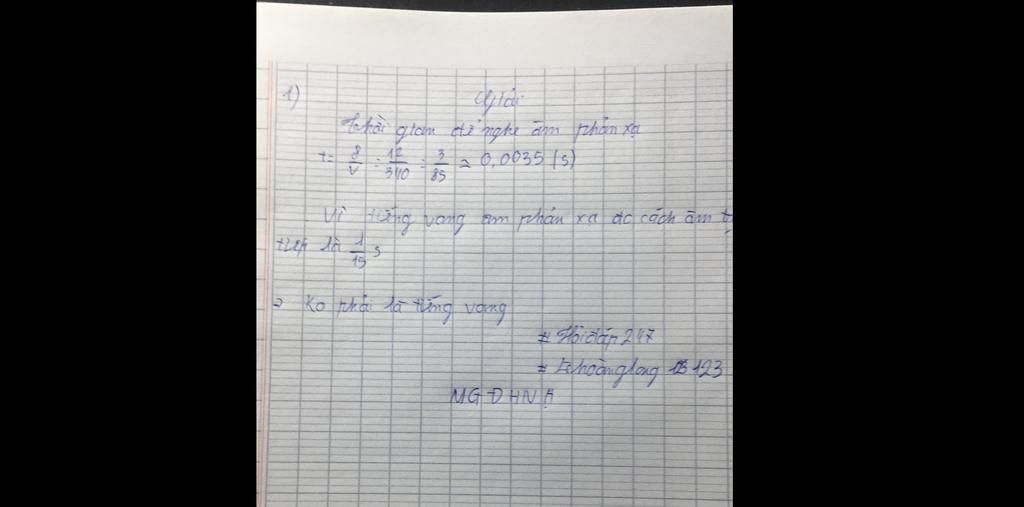 1) Giải
thời gian để nghe âm phản xạ
t = 8/v = 12/340 = 3/85 ≈ 0,0035 (s)
Vì tiếng vang âm phản xạ đc cách âm
tiếp là 1/15 s
=> Ko phải là tiếng vang
# Hỏi đáp 247
# Lehoànglong 123
MGĐHNẠ